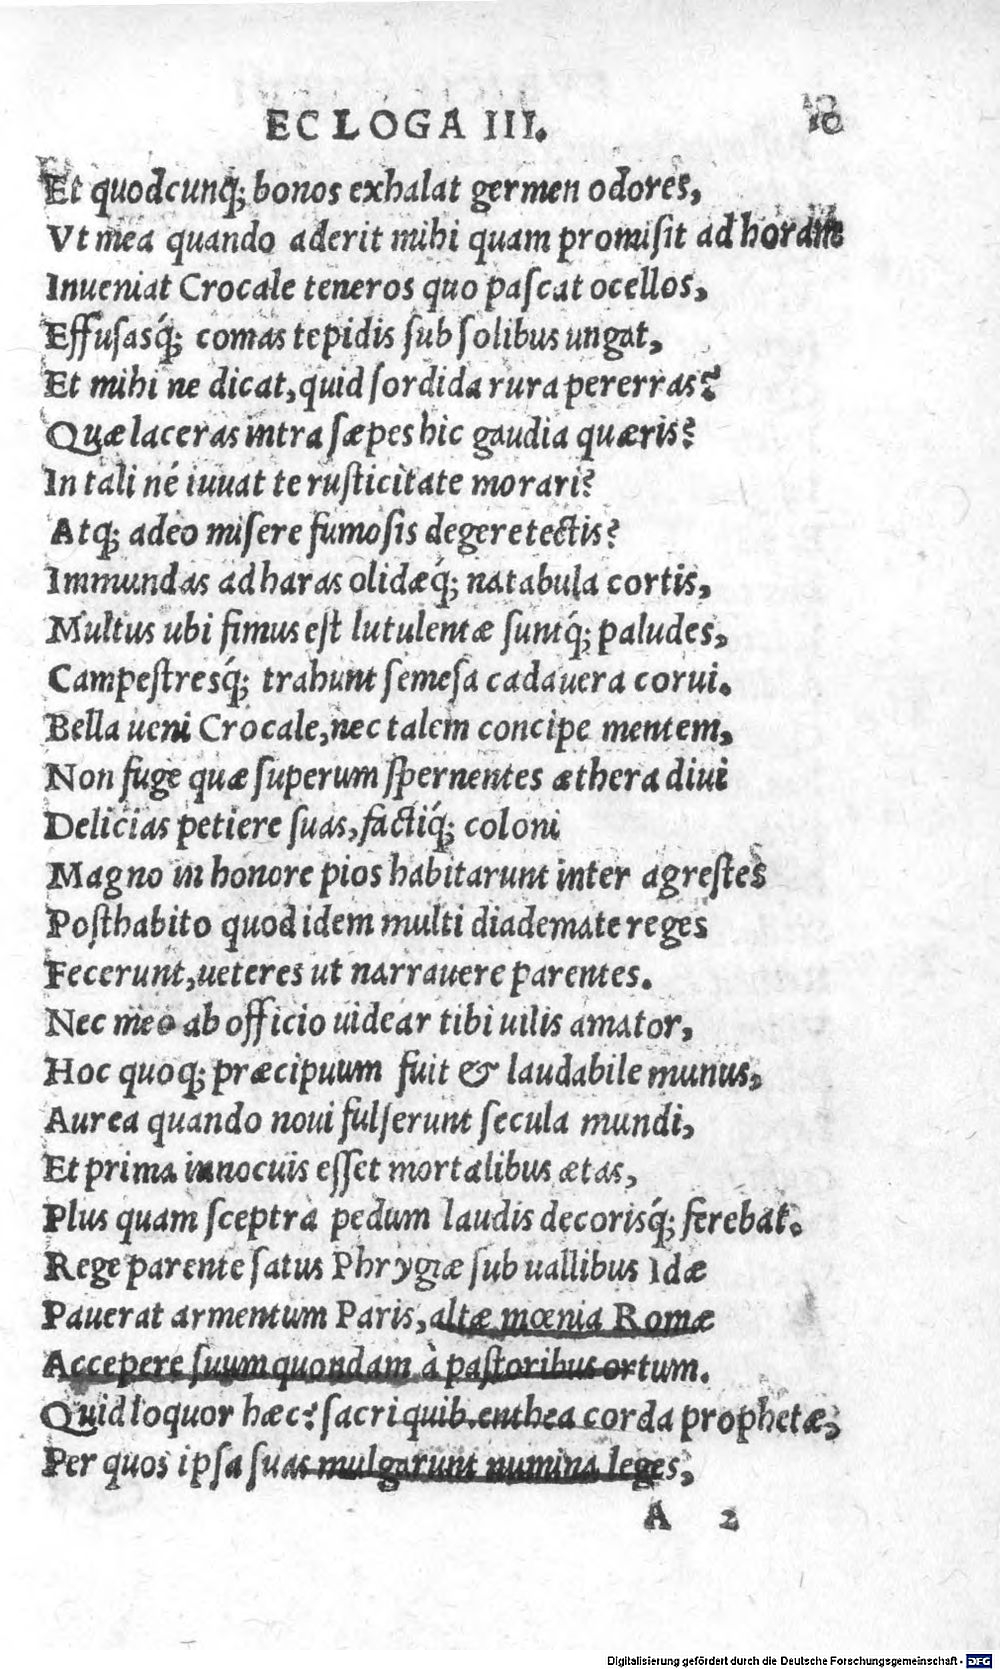 ECLOGA III. 10
Et quodcunq; bonos exhalat germen odores,
Vt mea quando aderit mihi quam promiſit ad hordim
Inueniat Crocale teneros quo paſcat ocellos,
Effuſasq́; comas tepidis ſub ſolibus ungat,
Et mihi ne dicat, quid ſordida rura pererras?
Quæ laceras intra ſæpes hic gaudia quæris?
In tali né iuuat te ruſticitate morari?
Atq; adeo miſere fumoſis degere tectis?
Immundas ad haras olidæq́; natabula cortis,
Multus ubi fimus eſt lutulentæ ſuntq́; paludes,
Campeſtresq́; trahunt ſemeſa cadauera corui.
Bella ueni Crocale, nec talem concipe mentem,
Non fuge quæ ſuperum ſpernentes æthera diui
Delicias petiere ſuas, factiq́; coloni
Magno in honore pios habitarunt inter agreſtes
Poſthabito quod idem multi diademate reges
Fecerunt, ueteres ut narrauere parentes.
Nec meo ab officio uidear tibi uilis amator,
Hoc quoq; præcipuum fuit & laudabile munus,
Aurea quando noui fulſerunt ſecula mundi,
Et prima innocuis eſſet mortalibus ætas,
Plus quam ſceptra pedum laudis decorisq́; ferebat.
Rege parente ſatus Phrygiæ ſub uallibus Idæ
Pauerat armentum Paris, altæ mœnia Romæ
Accepere ſuum quondam à paſtoribus ortum.
Quid loquor hæc? ſacri quib. enthea corda prophetæ,
Per quos ipſa ſuas mulgarunt numina leges,
A 2
Digitalisierung gefördert durch die Deutsche Forschungsgemeinschaft - DFG